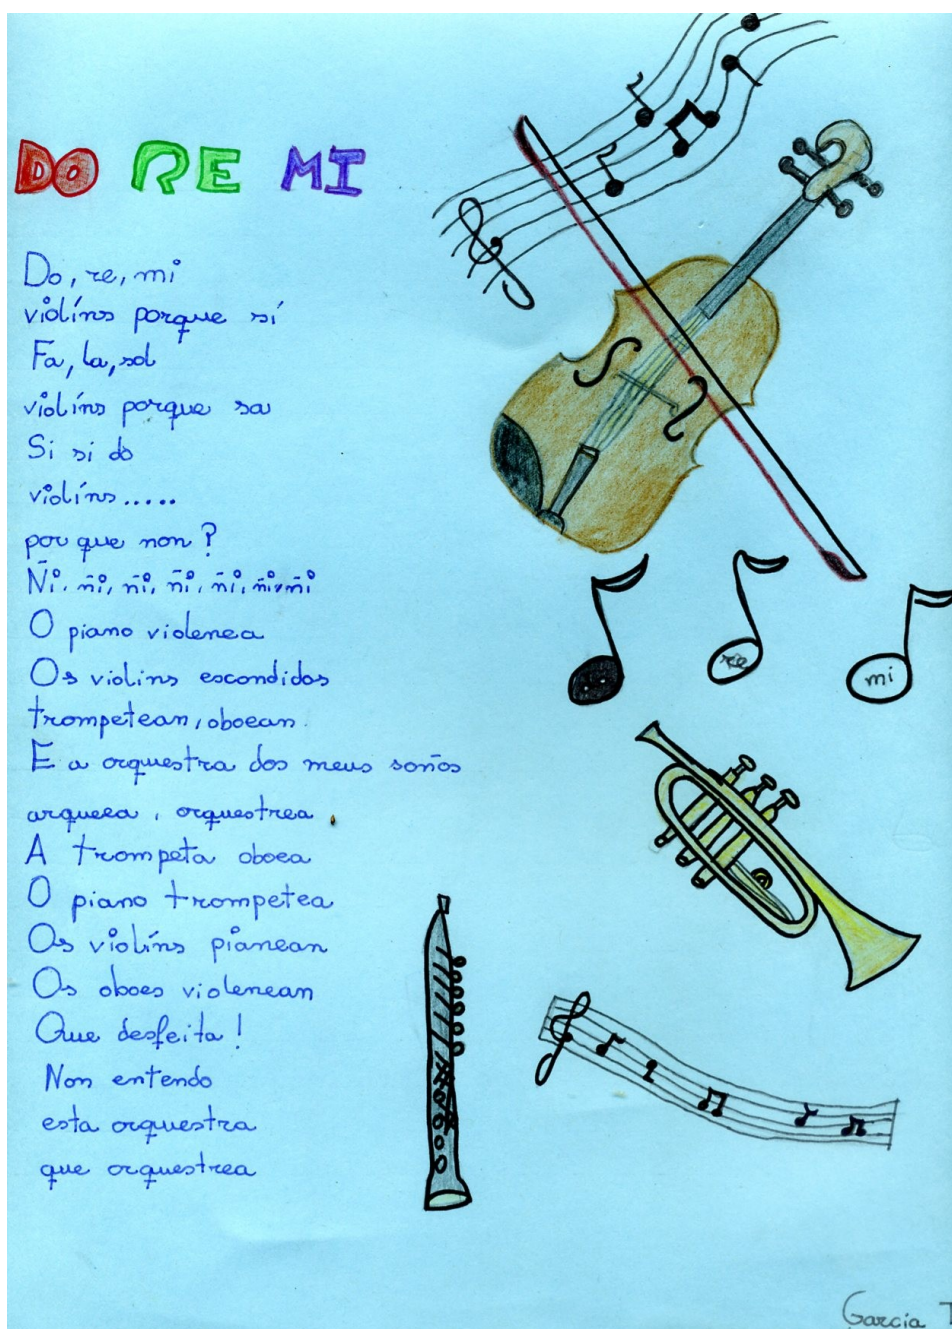 DO RE MI
Do, re, mi
violíns porque sí
Fa, la, sol
violíns porque sa
Si si do
violíns.....
por que non?
Ñi, ñi, ñi, ñi, ñi, ñi, ñi
O piano violenea
Os violins escondidos
trompetean, oboean.
E a orquestra dos meus soños
arquea, orquestrea.
A trompeta oboea
O piano trompetea
Os violíns pianean
Os oboes violenean
Que desfeita!
Non entendo
esta orquestra
que orquestrea
re
mi
Garcia T